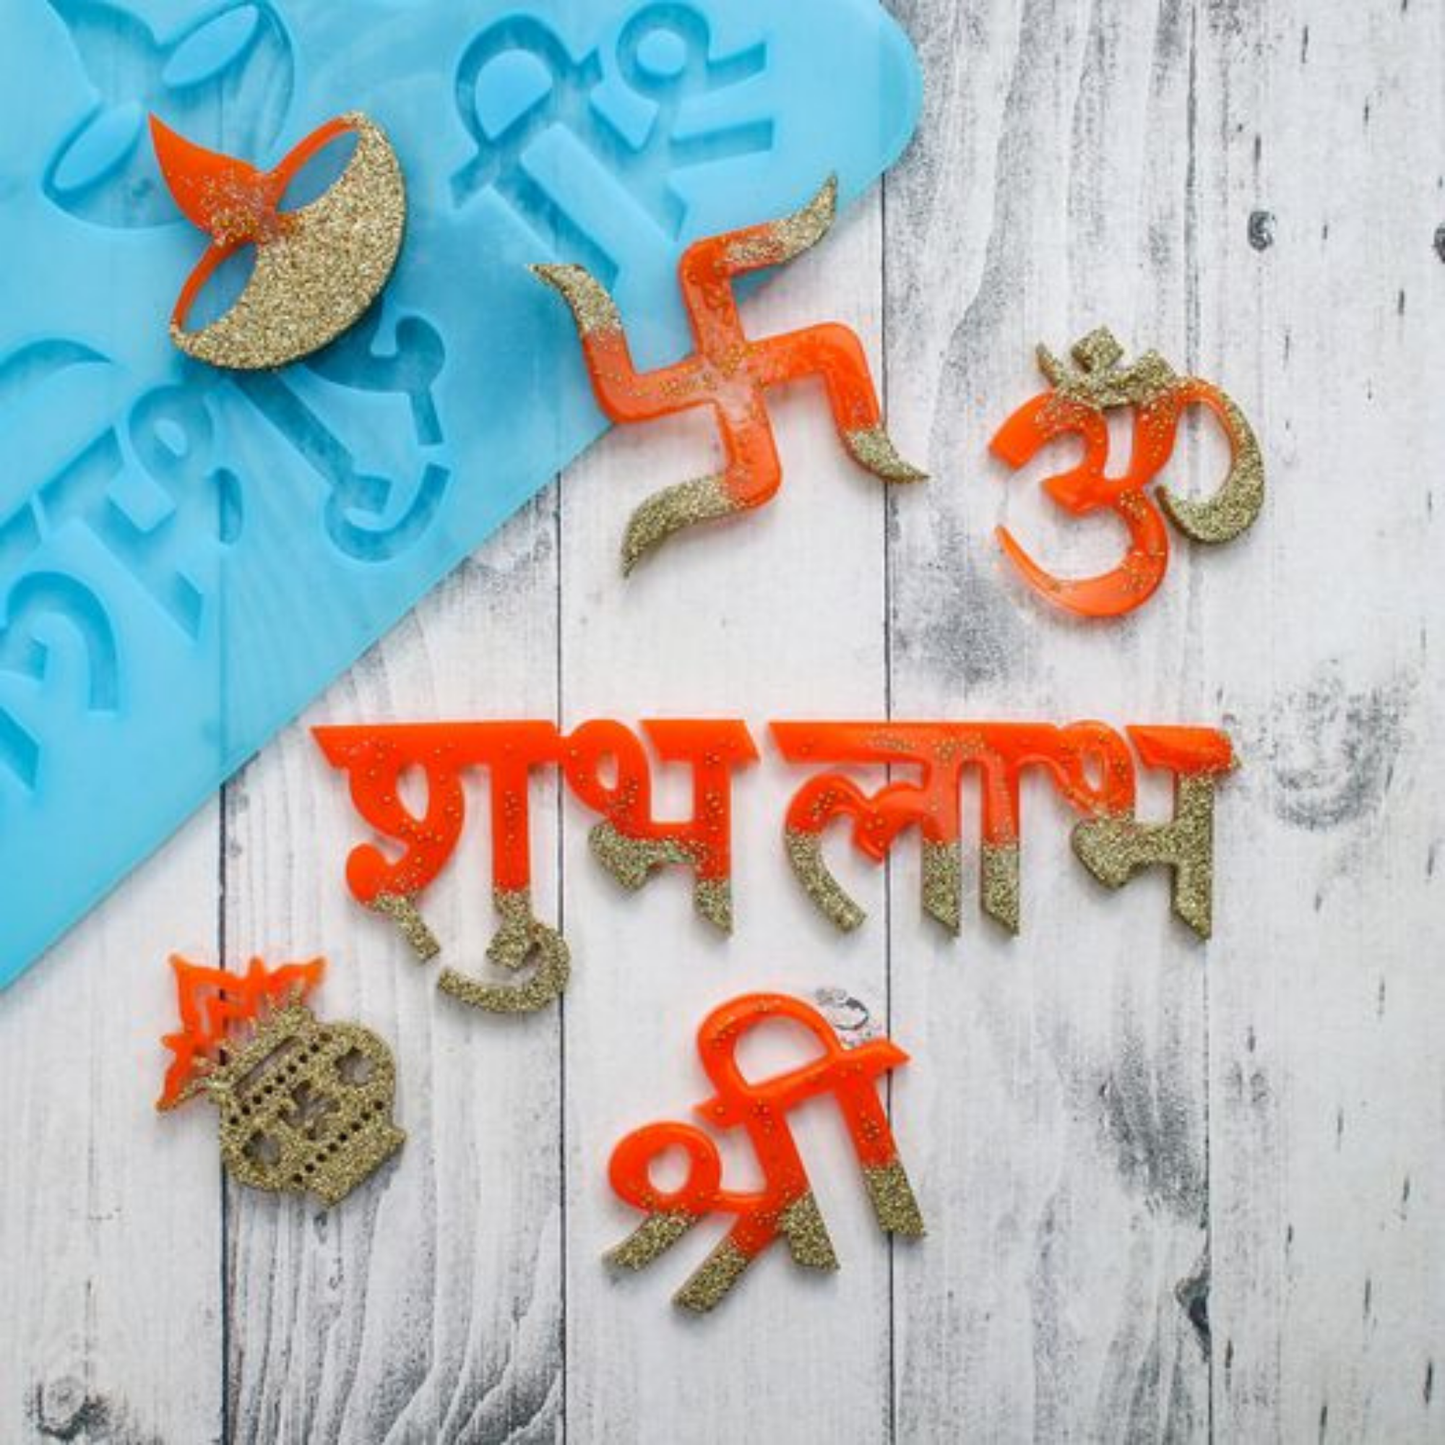 ॐ
शुभ लाभ
श्री